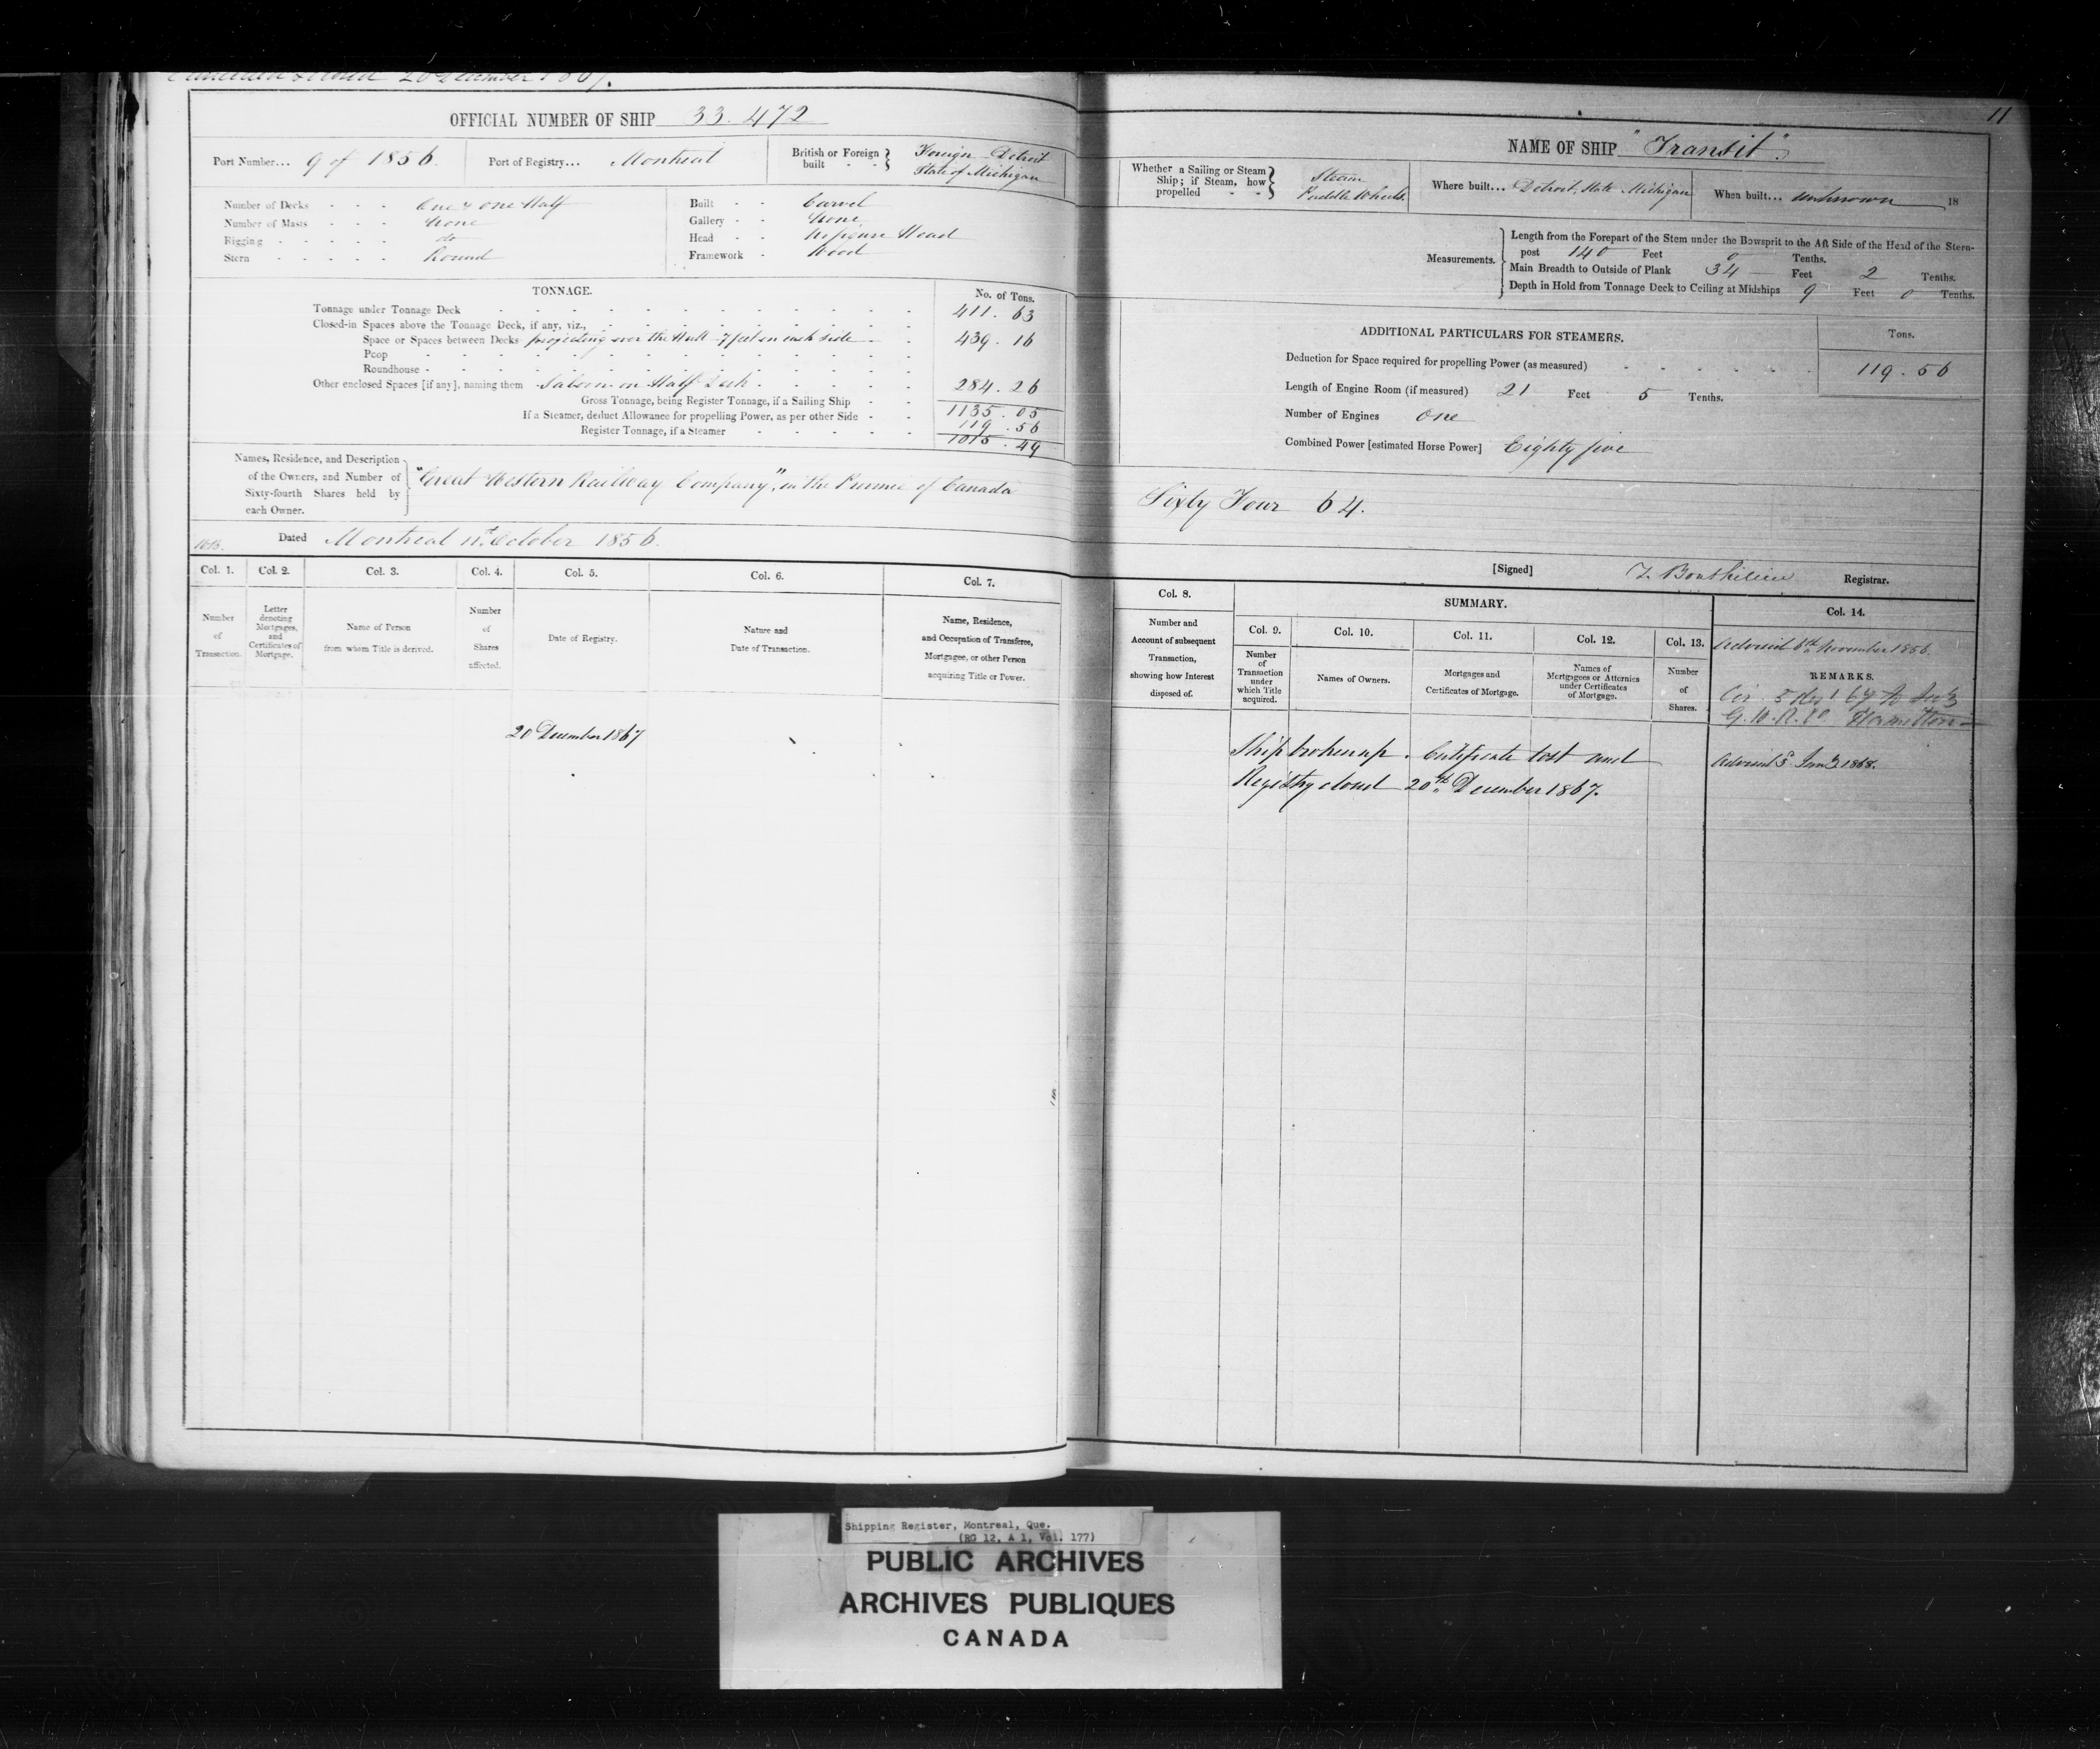 20 December 1867.
OFFICIAL NUMBER OF SHIP 33.472
Port Number... 9 of 1856. Port of Registry... Montreal British or Foreign built - - Foreign Detroit State of Michigan
Number of Decks - - - One & One Half
Number of Masts - - - None
Rigging - - - - - do
Stern - - - - - Round
Built - - Carvel
Gallery - - None
Head - - No figure Head
Framework - Wood
TONNAGE. No. of Tons.
Tonnage under Tonnage Deck 411.63
Closed-in Spaces above the Tonnage Deck, if any, viz.,
Space or Spaces between Decks projecting over the Hull 7 feet on each side 439.16
Poop
Roundhouse
Other enclosed Spaces [if any], naming them Saloon on Half Deck 284.26
Gross Tonnage, being Register Tonnage, if a Sailing Ship 1135.05
If a Steamer, deduct Allowance for propelling Power, as per other Side 119.56
Register Tonnage, if a Steamer 1015.49
Names, Residence, and Description of the Owners, and Number of Sixty-fourth Shares held by each Owner.
"Great Western Railway Company", in the Province of Canada
Dated Montreal 11th October 1856.
Col. 1. Col. 2. Col. 3. Col. 4. Col. 5. Col. 6. Col. 7.
Number of Transaction.
Letter denoting Mortgages, and Certificates of Mortgage.
Name of Person from whom Title is derived.
Number of Shares affected.
Date of Registry.
Nature and Date of Transaction.
Name, Residence, and Occupation of Transferee, Mortgagee, or other Person acquiring Title or Power.
20 December 1867
11
NAME OF SHIP "Transit"
Whether a Sailing or Steam Ship; if Steam, how propelled - - Steam Paddle Wheels.
Where built... Detroit, State Michigan When built... unknown 18
Measurements.
Length from the Forepart of the Stem under the Bowsprit to the Aft Side of the Head of the Stern-
post 140 Feet 0 Tenths.
Main Breadth to Outside of Plank 34 Feet 2 Tenths.
Depth in Hold from Tonnage Deck to Ceiling at Midships 9 Feet 0 Tenths.
ADDITIONAL PARTICULARS FOR STEAMERS. Tons.
Deduction for Space required for propelling Power (as measured) 119.56
Length of Engine Room (if measured) 21 Feet 5 Tenths.
Number of Engines One
Combined Power [estimated Horse Power] Eighty five
Sixty Four 64.
[Signed] Registrar.
Col. 8. SUMMARY. Col. 14.
Number and Account of subsequent Transaction, showing how Interest disposed of.
Col. 9. Col. 10. Col. 11. Col. 12. Col. 13.
Number of Transaction under which Title acquired.
Names of Owners.
Mortgages and Certificates of Mortgage.
Names of Mortgagees or Attornies under Certificates of Mortgage.
Number of Shares.
Advised 8th November 1856.
REMARKS.
G.W.R. Co Hamilton
Ship broken up. Certificate lost and
Registry closed 20th December 1867.
Advised Jany 1868.
Shipping Register, Montreal, Que.
(RG 12, A 1, Vol. 177)
PUBLIC ARCHIVES
ARCHIVES PUBLIQUES
CANADA